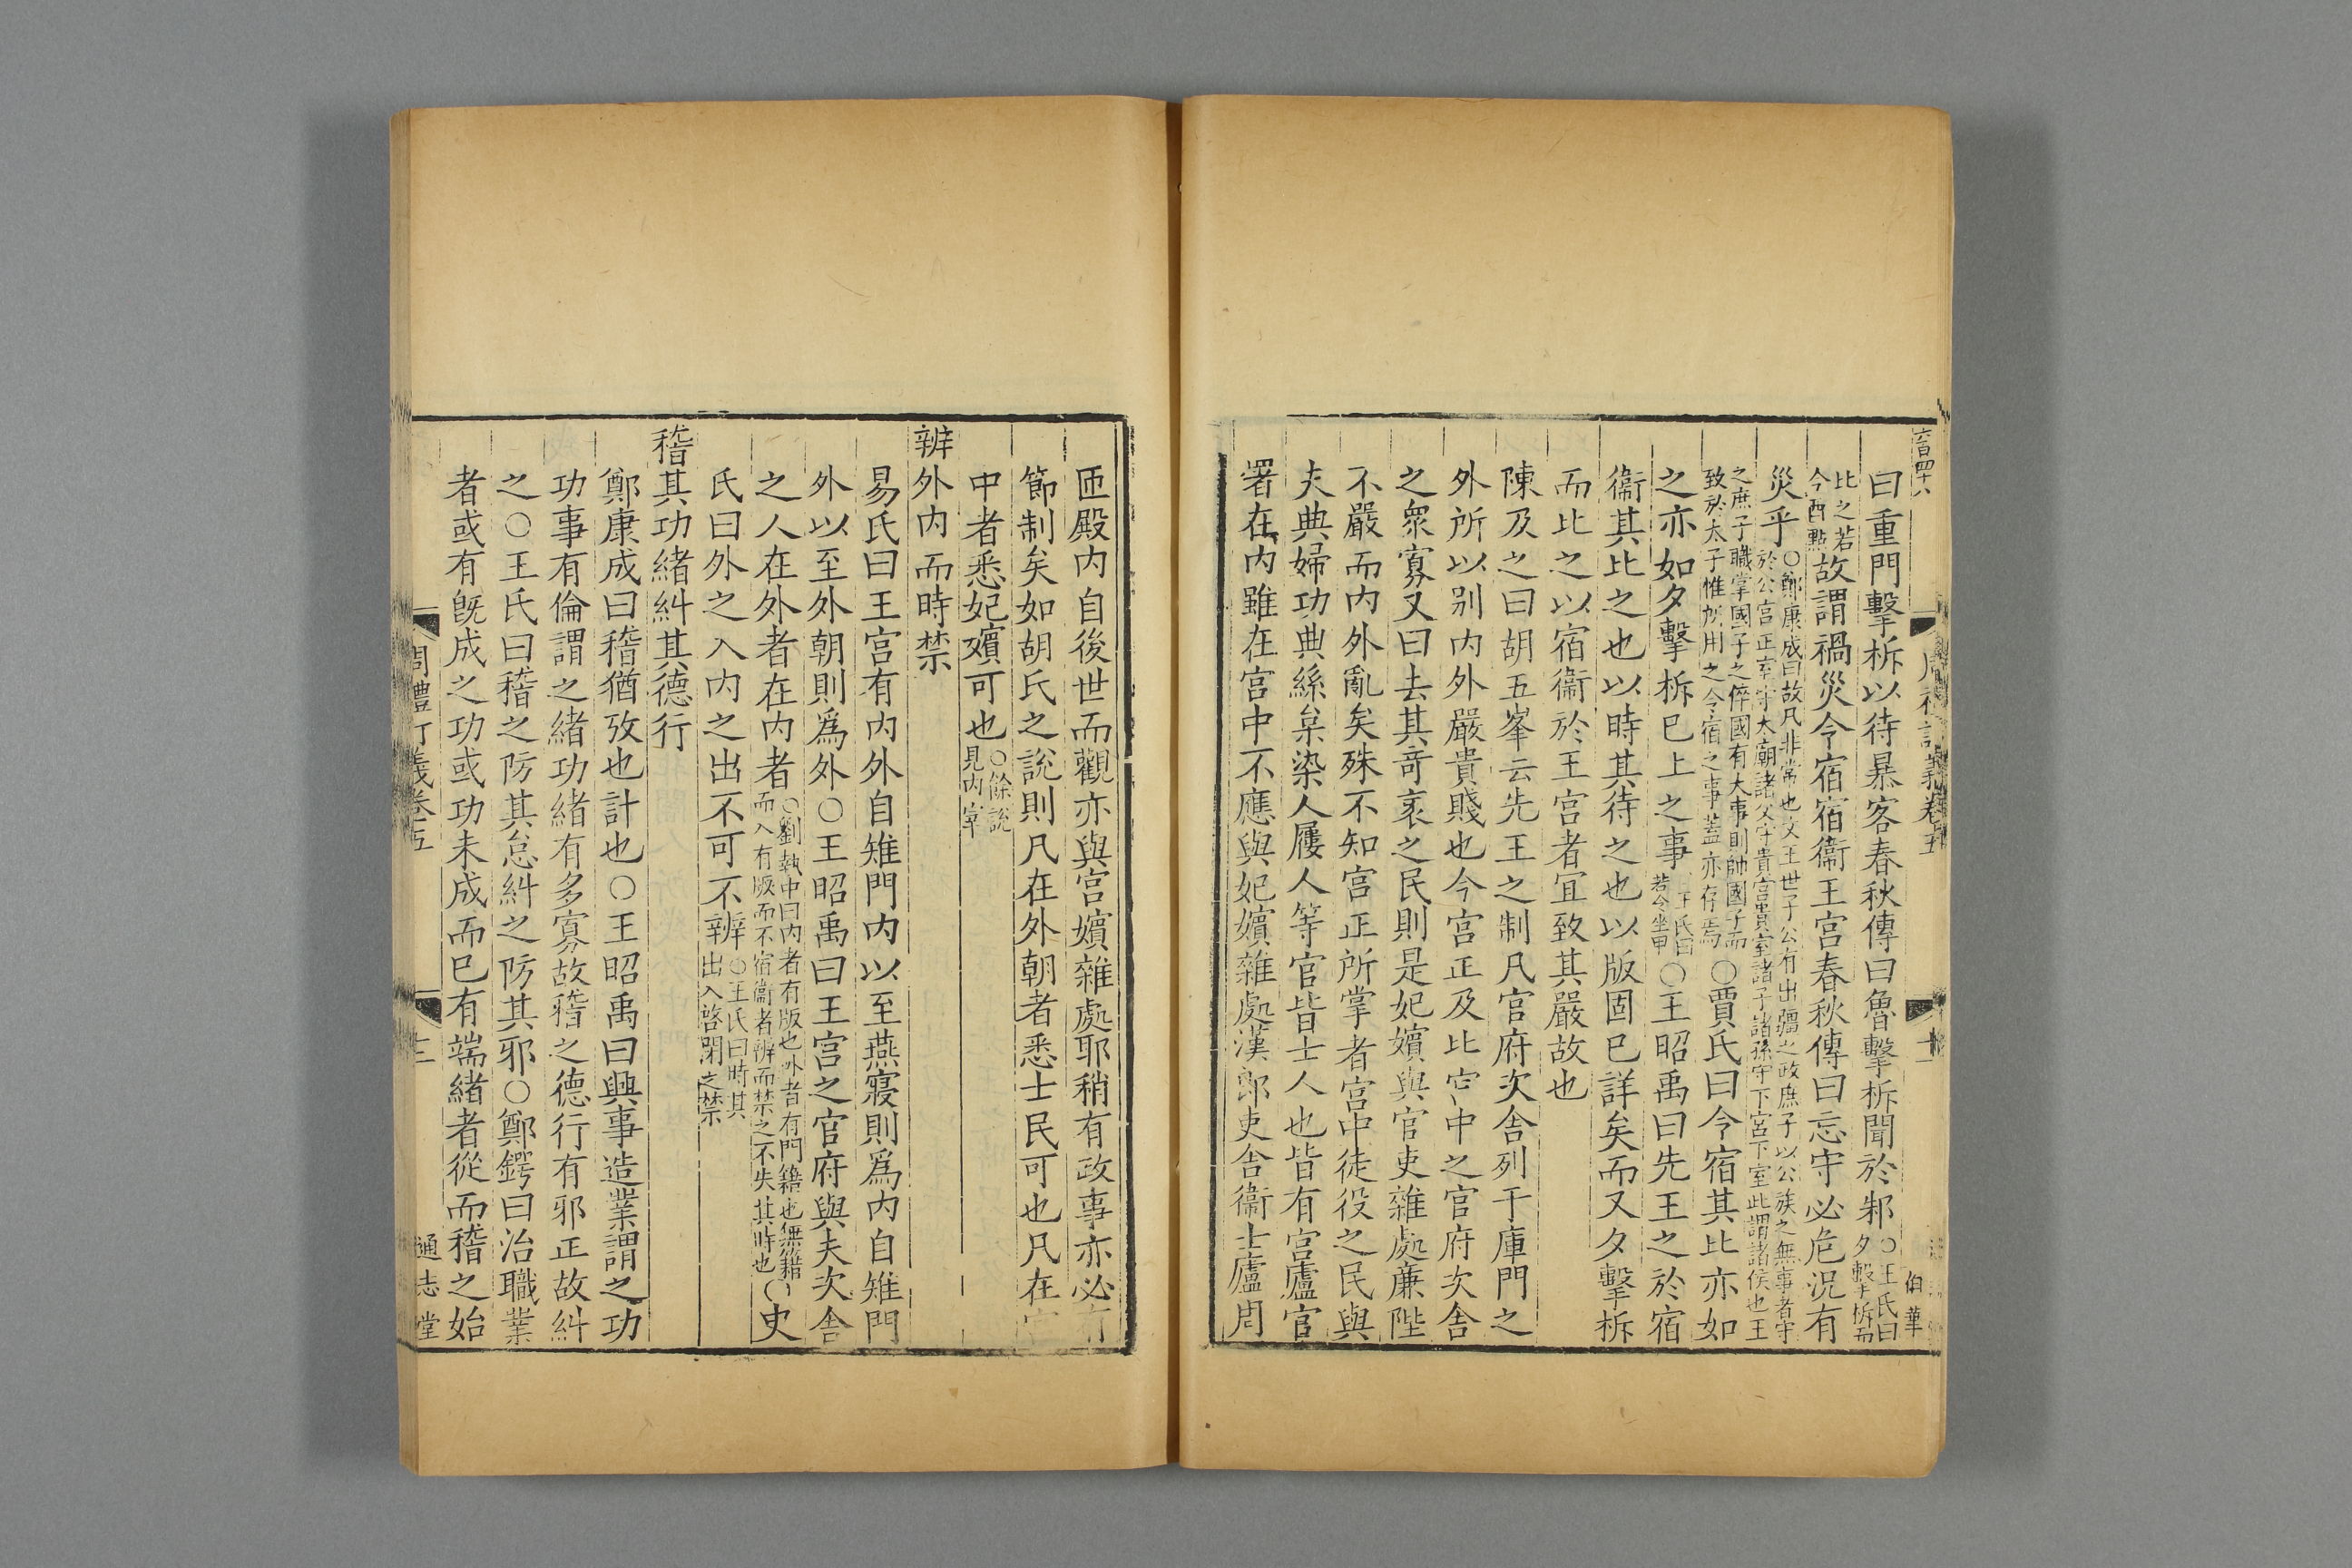 六百四十八
伯華
曰重門擊柝以待暴客春秋傳曰魯擊柝聞於邾○王氏曰夕擊柝而
比之若今酉點故謂禍災今宿宿衞王宮春秋傳曰忘守必危況有
災乎○鄭康成曰故凡非常也文王世子公有出疆之政庶子以公族之無事者守於公宮正室守太廟諸父守貴宮貴室諸子諸孫守下宮下室此謂諸侯也王
之庶子職掌國子之倅國有大事則帥國子而致於太子惟所用之令宿之事蓋亦存焉○賈氏曰今宿其比亦如
之亦如夕擊柝已上之事○王氏曰若今坐甲○王昭禹曰先王之於宿
衞其比之也以時其待之也以版固已詳矣而又夕擊柝
而比之以宿衞於王宮者宜致其嚴故也
陳及之曰胡五峯云先王之制凡官府次舍列于庫門之
外所以别内外嚴貴賤也今宮正及比宮中之官府次舍
之衆寡又曰去其竒衺之民則是妃嬪與官吏雜處廉陛
不嚴而内外亂矣殊不知宮正所掌者宮中徒役之民與
夫典婦功典絲枲染人屨人等官皆士人也皆有宮廬官
署在内雖在宮中不應與妃嬪雜處漢郎吏舍衞士廬周
匝殿内自後世而觀亦與宮嬪雜處耶稍有政事亦必有
節制矣如胡氏之說則凡在外朝者悉士民可也凡在宮
中者悉妃嬪可也○餘說見内宰
辨外内而時禁
易氏曰王宮有内外自雉門内以至燕寢則爲内自雉門
外以至外朝則爲外○王昭禹曰王宮之官府與夫次舍
之人在外者在内者○劉執中曰内者有版也外者有門籍也無籍而入有版而不宿衞者辨而禁之不失其時也○史
氏曰外之入内之出不可不辨○王氏曰時其出入啓閉之禁
稽其功緖糾其德行
鄭康成曰稽猶攷也計也○王昭禹曰興事造業謂之功
功事有倫謂之緖功緖有多寡故稽之德行有邪正故糾
之○王氏曰稽之防其怠糾之防其邪○鄭鍔曰治職業
者或有旣成之功或功未成而已有端緖者從而稽之始
周禮訂義卷五
通志堂